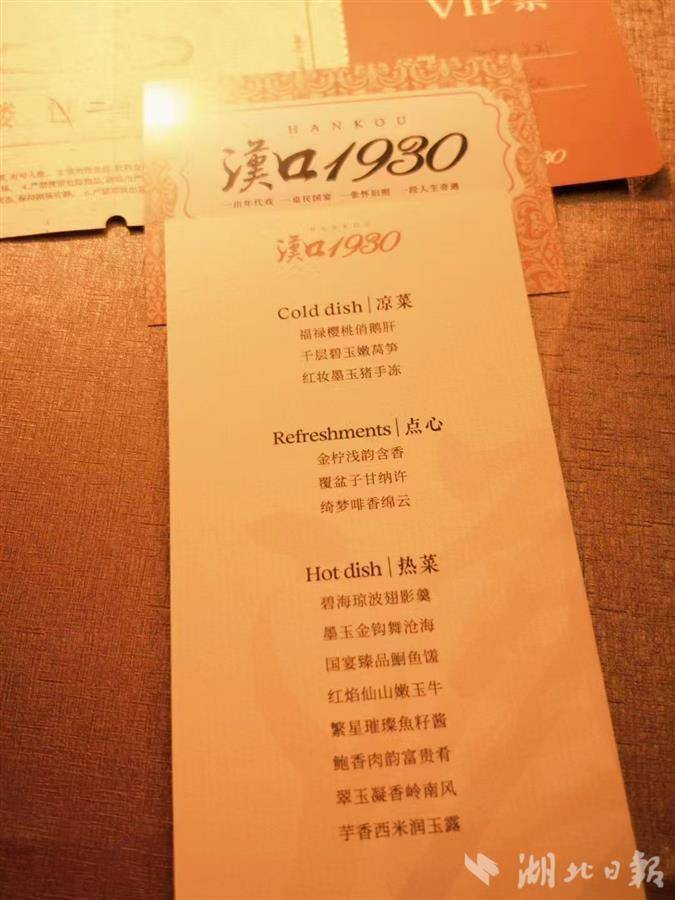 VIP票
HANKOU
漢口1930
一出年代戏 一桌民国宴 一张怀旧照 一段人生奇遇
HANKOU
漢口1930
Cold dish|凉菜
福禄樱桃俏鹅肝
千层碧玉嫩莴笋
红妆墨玉猪手冻
Refreshments|点心
金柠浅韵含香
覆盆子甘纳许
绮梦啡香绵云
Hot dish|热菜
碧海琼波翅影羹
墨玉金钩舞沧海
国宴臻品鮰鱼馐
红焰仙山嫩玉牛
繁星璀璨魚籽酱
鲍香肉韵富贵肴
翠玉凝香岭南风
芋香西米润玉露
湖北日報